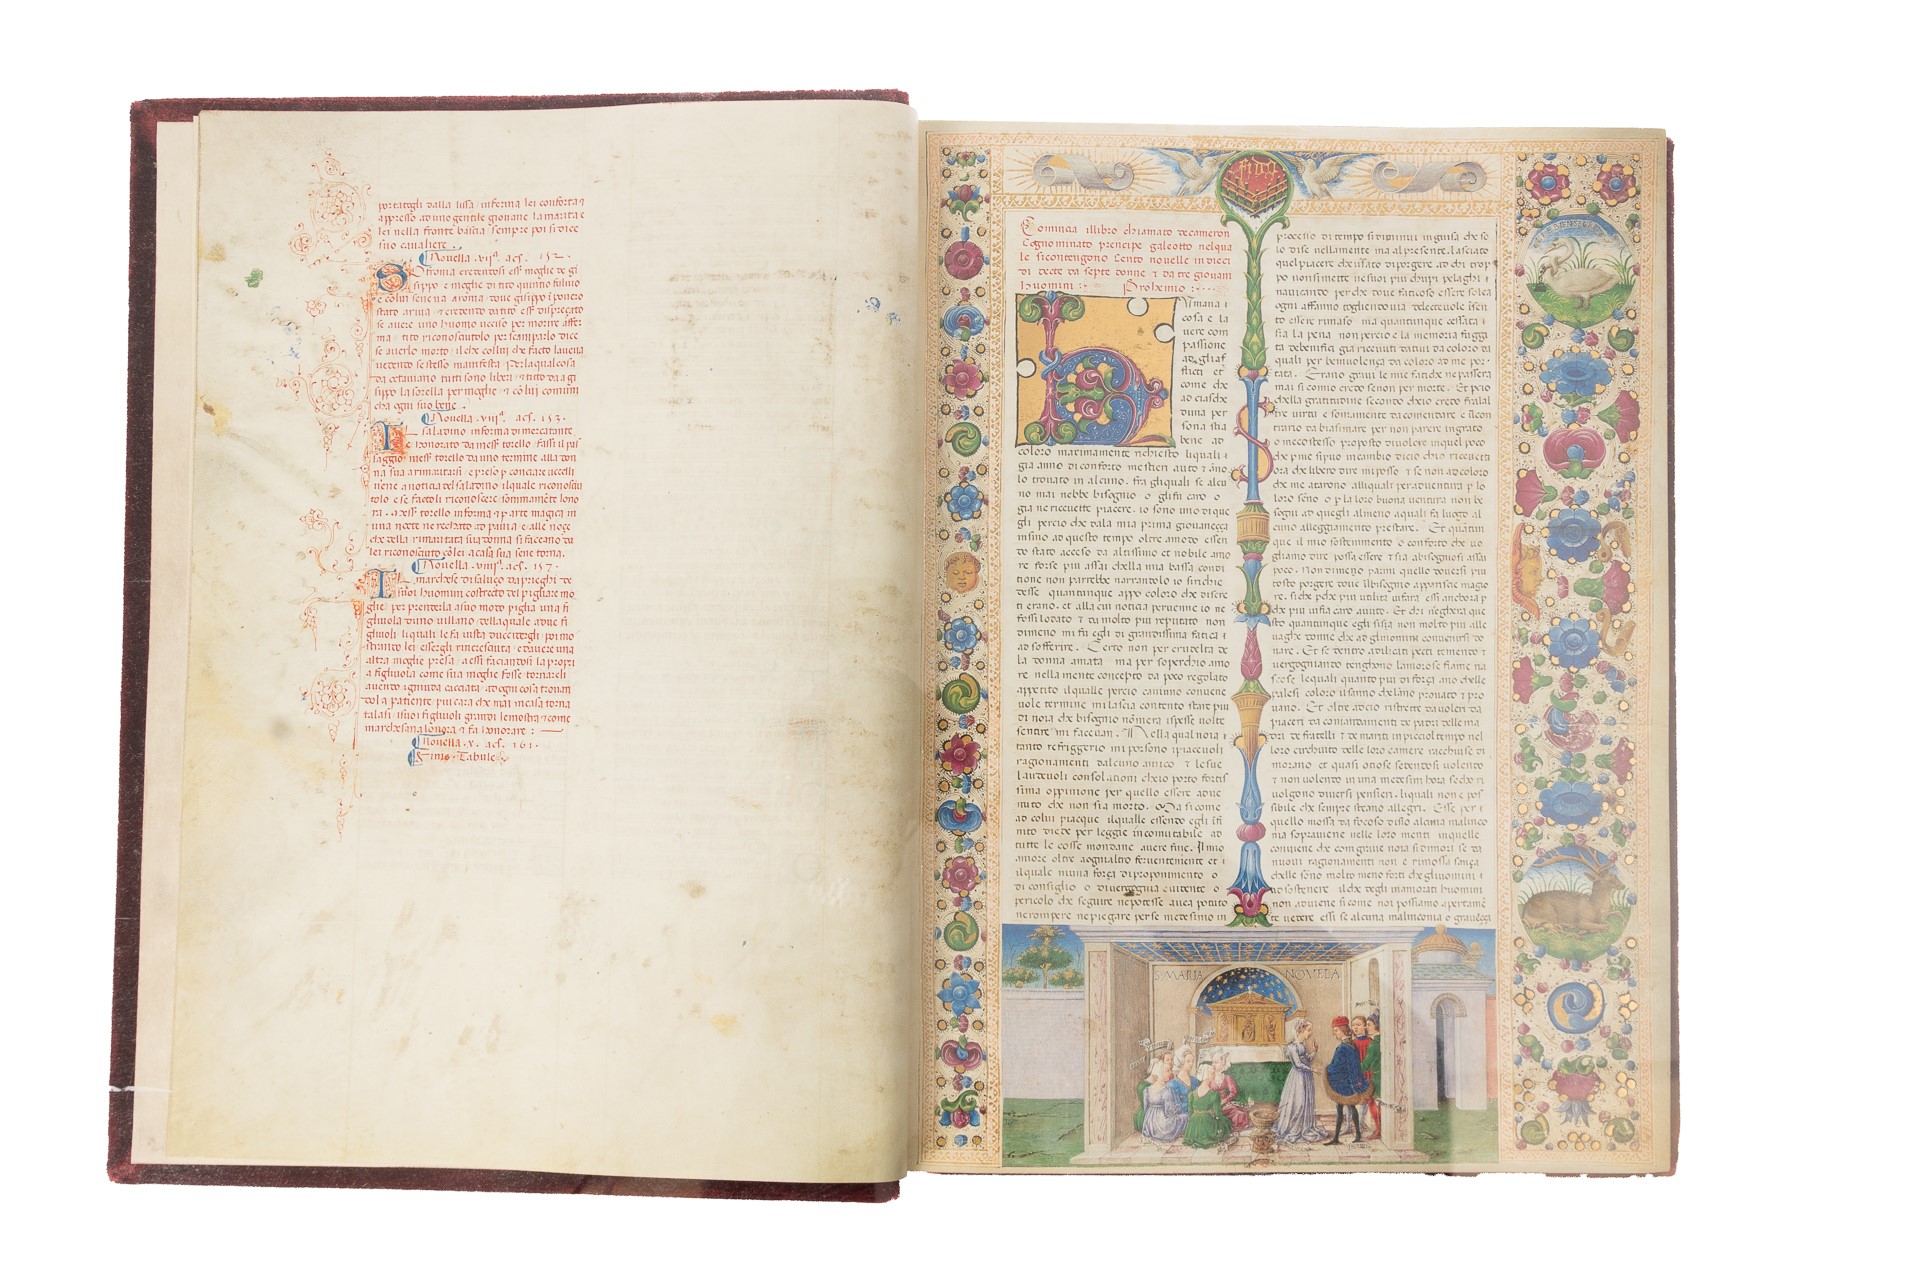 portategli dalla lissa / inferma lei conforta ⁊
appresso ad uno gentile giovane la marita e
lei nella fronte basciata / sempre poi si dice
suo cavaliere .
Novella . vii
Ofronia credendosi
sippo e moglie di tito quintio fulvio
e cōlui sene va a roma / dove gisippo ī povero
stato arriva / ⁊ credendo da tito esser disprezato
se avere uno huomo ucciso per morire affer
ma / tito riconosciutolo per scamparlo dice
se averlo morto / il che colui che facto lavena
vedendo se stesso manifesta / per la qual cosa
da octaviano tutti sono liberi / ⁊ tito da a gi
sippo la sorella per moglie / ⁊ cō lui comuni
cha ogni suo bene .
Novella . viiii . acſ . 153 .
IL saladino in forma di mercatante
e honorato da mess torello / fassi il pas
saggio / mess torello da uno termine alla don
na sua a rimaritarsi / e preso p conciare uccelli
viene a notitia del saladino il quale riconosciu
tolo e se factoli riconoscere sommamēte lono
ra . mess torello inferma ⁊ p arte magica in
una nocte ne rechato ad pavia / e alle noçe
che della rimaritata sua donna si faceano da
lei riconosciuto cō lei a casa sua sene torna .
Novella . viiii . acſ . 157 .
IL marchese di saluço da prieghi de
suoi huomini costrecto del pigliare mo
glie / per prenderla a suo modo piglia una fi
gliuola duno villano / della quale a due fi
gliuoli / li quali le fa vista duccidergli / poi mo
strando lei essergli rincresciuta / e davere una
altra moglie presa / a essi faciendosi la propri
a figliuola come sua moglie fosse tornareli
avendo ignuda cacciata / ad ogni cosa trovan
dola patiente / piu cara che mai in casa torna
talasi / suoi figliuoli grandi le mostra ⁊ come
marchesana lonora ⁊ fa honorare :
Novella . x . acſ . 161 .
Finis Tabule
Comincia illibro chiamato decameron
Cognominato prencipe galeotto nelqua
le sicontengono Cento novelle in dieci
di decte da septe donne ⁊ da tre giovani
huomini : Prohemio :
Vmana e
cosa e la
vere com
passione
ad gli af
flicti et
come che
ad ciasche
duna per
sona stia
bene ad
coloro maximamente richiesto liquali
gia anno di conforto mestieri auto ⁊ ānno
lo trovato in alcuno . fra gliquali se alcu
no mai nebbe bisogno o glifu caro o
gia ne riceuette piacere . io sono uno di que
gli percio che dalla mia prima giovanecça
insino ad questo tempo oltre amodo essen
do stato acceso da altissimo et nobile amo
re forse piu assai chella mia bassa condi
tione non parrebbe narrandolo io sirichie
desse quantunque appo coloro che discre
ti erano . et alla cui notitia peruenne io ne
fossi lodato ⁊ da molto piu reputato non
dimeno mi fu egli di grandissima fatica a
sofferire . Certo non per crudelta de
la donna amata ma per soperchio amo
re nella mente concepto da poco regolato
appetito ilquale percio cauimo conuene
uole termine mi lascia contento stare piu
di noia che bisogno nōmera ispesse uolte
sentire mi faceuan . Nella qual noia
tanto refriggerio mi porsono ipiaceuoli
ragionamenti dalcuno amico ⁊ lesue
laudeuoli consolationi chio porto fermis
sima oppinione per quello essere adue
nuto che non sia morto . Ma si come
ad colui piacque ilquale essendo egli īfi
nito diede per leggie incomutabile ad
tutte le cosse mondane auere fine . Il mio
amore oltre adognaltro feruentemente et
ilquale niuna força di proponimento o
di consiglio o di uergognia euidente o
pericolo che seguire ne potesse auea potuto
ne rompere ne piegare per se medesimo in
processo di tempo si diminui inguisa che so
lo dise nellamente ma al presente . lasciato
quel piacere che usato di porgere ad chi trop
po nonsimette nesuoi piu chupi pelaghi
nauicando per che doue faticoso essere solea
ogni affanno togliendo uia . dilecteuole isen
to essere rimaso ma quantunque cessata
sia la pena non percio e la memoria fuggi
ta debenifici gia riceuuti datiui da coloro da
quali per beniuolença da coloro ad me por
tata . Erano graui le mie fatiche ne passera
mai si comio credo senon per morte . Et pcio
chella gratitudine secondo chio credo fralal
tre uirtu e sommamente da comendare e ilcon
trario da biasimare per non parere ingrato
o meco stesso proposto di uolere in quel poco
che p me sipuo incambio dicio chio riceuetti
ora che libero dire mi posso ⁊ se non ad coloro
che me atarono alliquali per aduentura p lo
loro seno o p la loro buona uentura non be
sogni ad quegli almeno aquali fa luogo al
cuno alleggiamento prestare . Et quantun
que il mio sostenimento o conforto che uo
gliamo dire possa essere ⁊ sia abisognosi assai
poco . Non dimeno parmi quello douersi piu
tosto porgere doue ilbisogno apparisce magio
re . si che p che piu utilita uifara essi anchora p
che piu uisia caro auuto . Et chi negherà que
sto quantunque egli sisia non molto piu alle
uaghe donne che ad gliuomini conuenirsi do
nare . Et se dentro adilicati pecti temendo ⁊
uergogniando tenghono lamorose fiame na
scose lequali quanto piu di força ano chelle
palesi coloro ilsanno chelano prouato ⁊ pro
uano . Et oltre adcio ristrette da uoleri da
piaceri da comandamenti de padri delle ma
dri de fratelli ⁊ de mariti in picciol tempo nel
loro circhuito delle loro camere racchiuse di
morano et quasi otiose sedendosi uolendo
⁊ non uolendo in una medesim hora seco ri
uolgono diuersi pensieri . liquali non e pos
sibile che sempre steano allegri . Esse per
quello mossa da focoso disio alcuna malinco
nia soprauiene nelle loro menti in quelle
conuiene che con graue noia si dimori se da
nuoui ragionamenti non e rimossa sança
chelle sono molto meno forti che gliuomini
ad sostenere . il che degli inamorati huomini
non aduiene si come noi possiamo apertamē
te uedere essi se alcuna malinconia o grauecça
S MARIA NOVELA